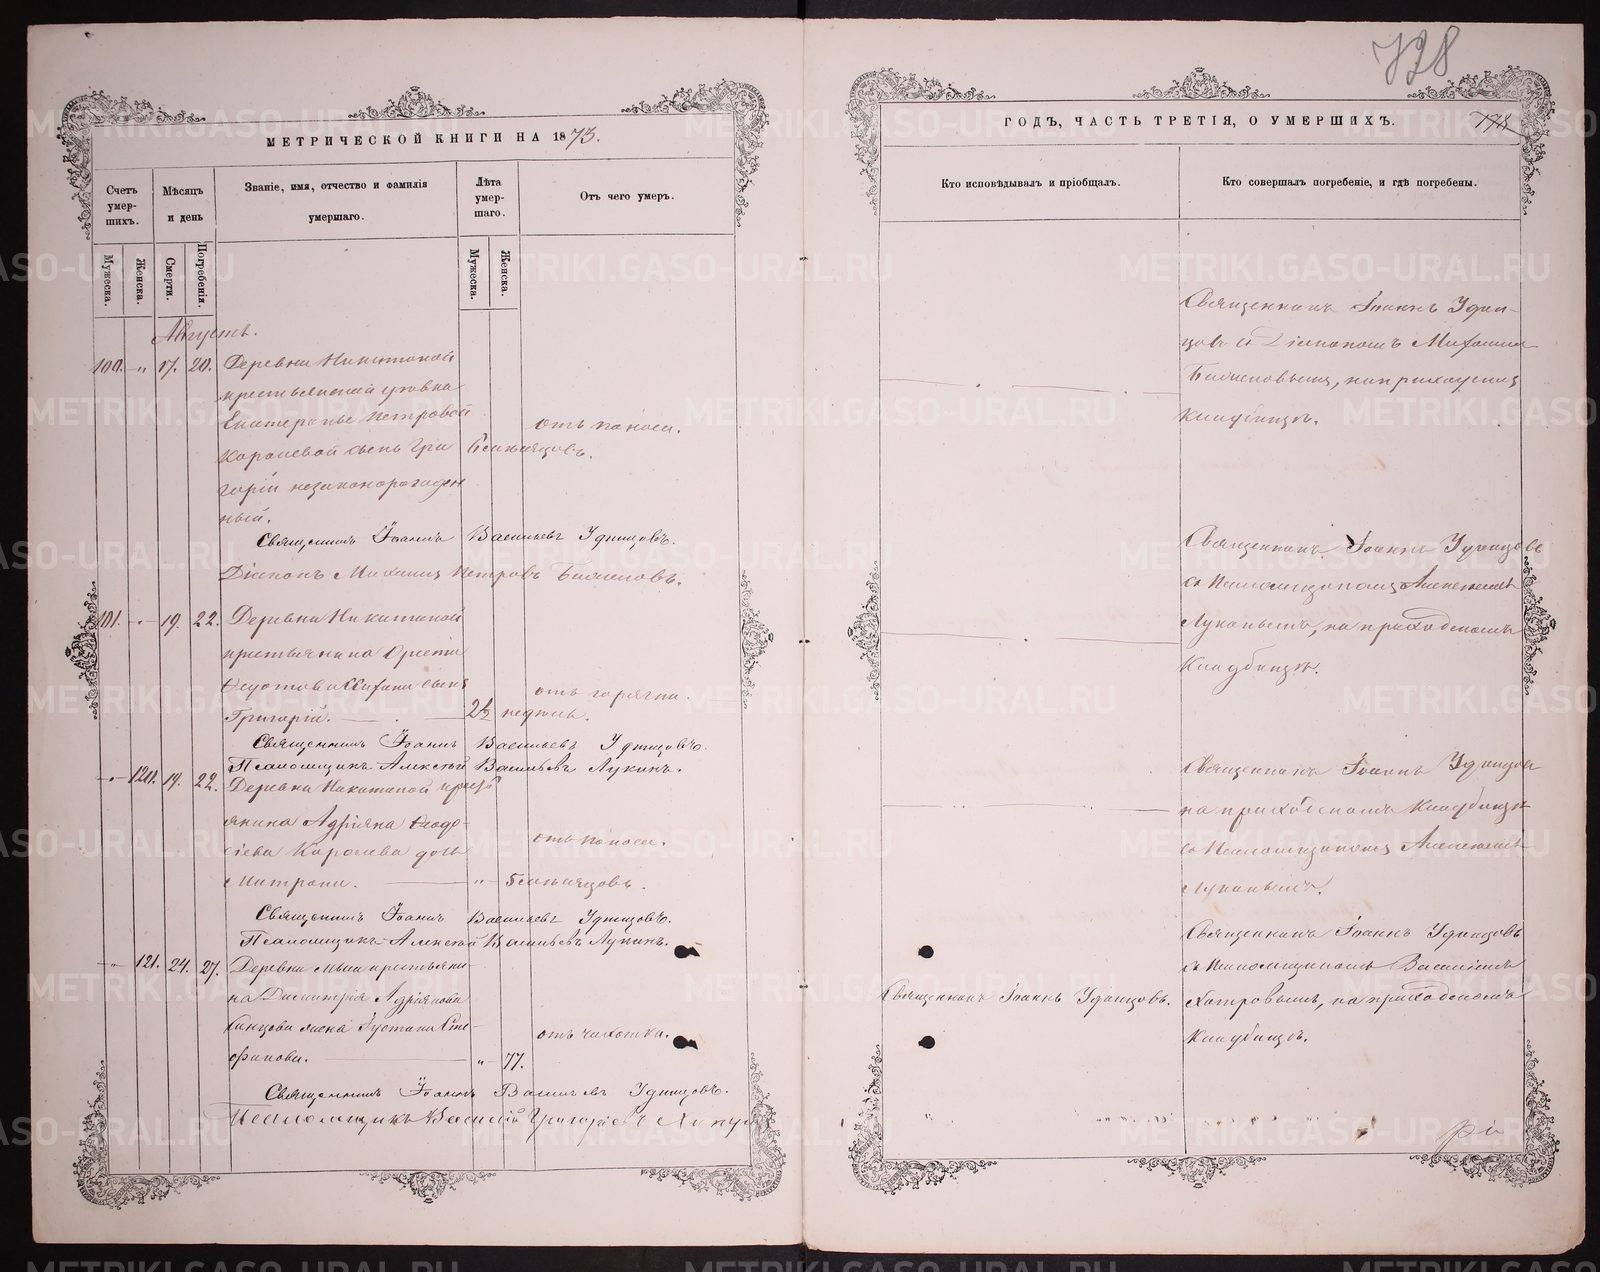 798
МЕТРИЧЕСКОЙ КНИГИ НА 1873.
ГОДЪ, ЧАСТЬ ТРЕТІЯ, О УМЕРШИХЪ.
Счетъ умер-шихъ.
Мѣсяцъ и день
Званіе, имя, отчество и фамилія умершаго.
Лѣта умер-шаго.
Отъ чего умеръ.
Кто исповѣдывалъ и пріобщалъ.
Кто совершалъ погребеніе, и гдѣ погребены.
Мужеска.
Женска.
Смерти.
Погребенія.
Мужеска.
Женска.
Августъ.
100. „ 17. 20. Деревни Никитиной
крестьянской
Екатерины Петровой
Королевой сынъ Гри
горій незаконорожден
ный.
6 мѣсяцовъ.
отъ поноса.
Священникъ Іоаннъ Васильевъ Удинцовъ.
Діаконъ Михаилъ Петровъ
Священникъ Іоаннъ Удин-
цовъ и Діакономъ Михаиломъ
на приходскомъ
кладбищѣ.
101. „ 19. 22. Деревни Никитиной
крестьянина
сынъ
Григорій.
2½ недѣль.
отъ горячки.
Священникъ Іоаннъ Васильевъ Удинцовъ.
Псаломщикъ Алексѣй Васильевъ Лукинъ.
Священникъ Іоаннъ Удинцовъ
съ Псаломщикомъ Алексѣемъ
Лукинымъ, на приходскомъ
кладбищѣ.
„ 120. 19. 22. Деревни Никитиной кресть
янина Адріана Ѳеодо-
сіева Королева дочь
Матрона.
„ 5 мѣсяцовъ.
отъ поноса.
Священникъ Іоаннъ Васильевъ Удинцовъ.
Псаломщикъ Алексѣй Васильевъ Лукинъ.
Священникъ Іоаннъ Удинцовъ
на приходскомъ кладбищѣ
съ Псаломщикомъ Алексѣемъ
Лукинымъ.
„ 121. 24. 27. Деревни крестьяни-
на Димитрія Адріанова
жена Іустина Сте-
фанова.
„ 77.
отъ чахотки.
Священникъ Іоаннъ Васильевъ Удинцовъ.
Псаломщикъ Василій Григорьевъ
Священникъ Іоаннъ Удинцовъ.
Священникъ Іоаннъ Удинцовъ
съ Псаломщикомъ Василіемъ
на приходскомъ
кладбищѣ.
METRIKI.GASO-URAL.RU